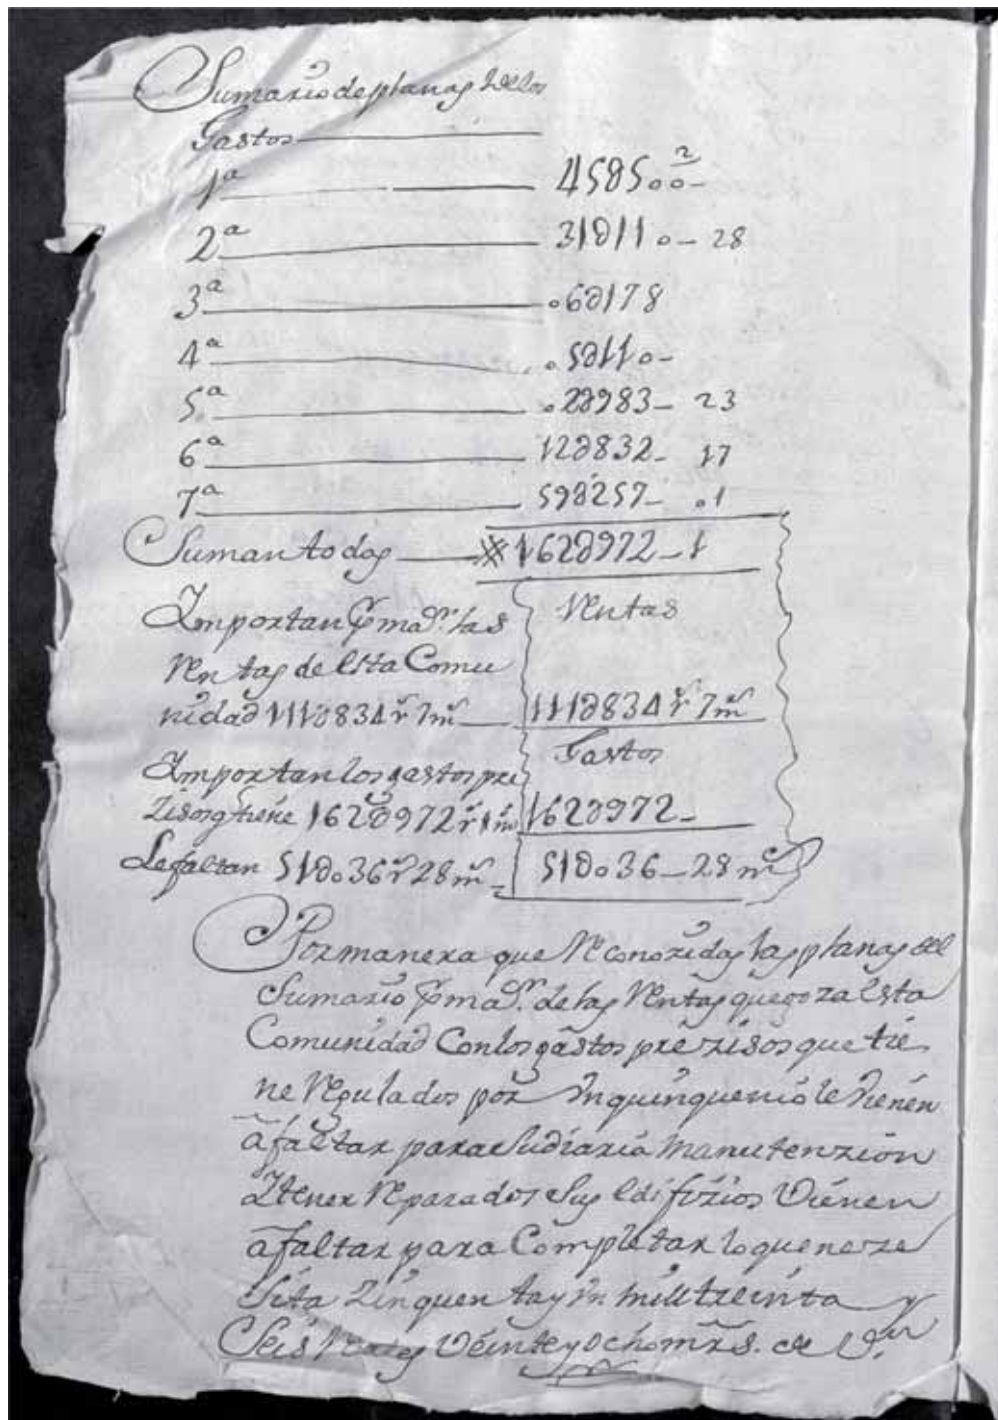 Sumario de planas de los
Gastos
1ª 45850 0 r
2ª 31∂110 - 28
3ª 06∂178
4ª 05∂110 -
5ª 02∂983 - 23
6ª 12∂832 - 17
7ª 59∂257 - 01
Suman todas 162∂972 - 1
Importan las
Rentas de esta Comu
nidad 111∂834 r 7 m
Rentas
111∂834 r 7 m
Importan los gastos pre
zisos q tiene 162∂972 r 1 m
Gastos
162∂972 -
Le faltan 51∂036 r 28 m
51∂036 - 28 m
Por manera que Reconozidas las planas del
Sumario de las Rentas que goza esta
Comunidad Con los gastos prezisos que tie
ne Regulados por Un quinquenio le vienen
a faltar para su diaria manutenzion
Y tener Reparados sus edifizios Vienen
a faltar para Completar lo que neze
sita Zinquenta y Un mill treinta y
Seis Reales Veinte y ocho mrs. de Vn